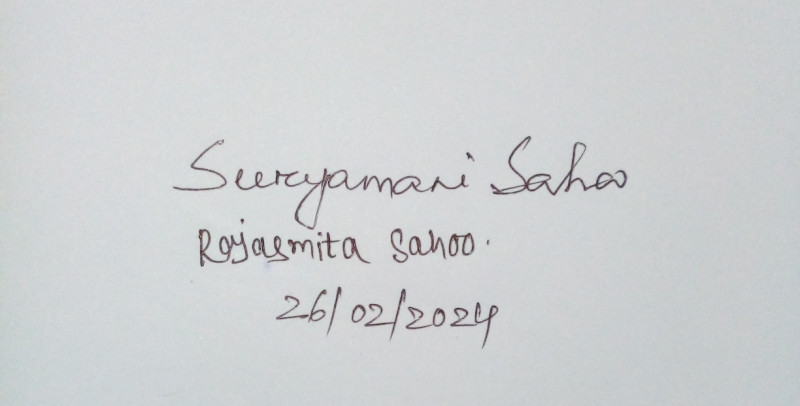 Suryamani Sahoo
Rojasmita Sahoo.
26/02/2024